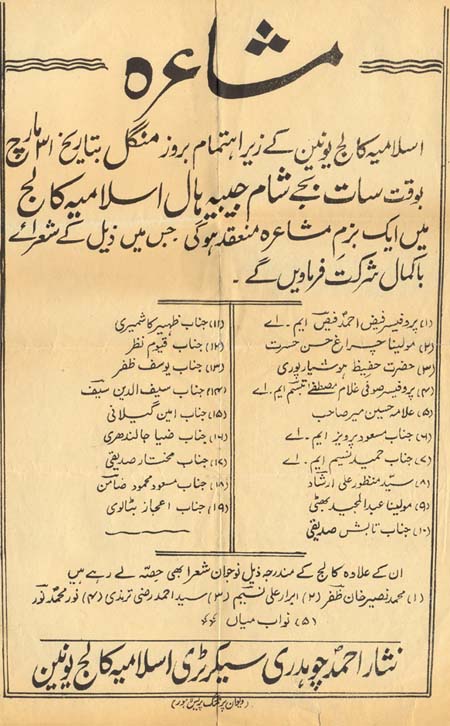 مشاعرہ
اسلامیہ کالج یونین کے زیر اہتمام بروز منگل بتاریخ ۳۱ مارچ
بوقت سات بجے شام حبیبیہ ہال اسلامیہ کالج
میں ایک بزم مشاعرہ منعقد ہوگی جس میں ذیل کے شعرائے
باکمال شرکت فرماویں گے ۔
(۱) پروفیسر فیض احمد فیض ایم ۔ اے
(۲) مولینا چراغ حسن حسرت
(۳) حضرت حفیظ ہوشیارپوری
(۴) پروفیسر صوفی غلام مصطفےٰ تبسم ایم ۔ اے
(۵) علامہ حسین میر صاحب
(۶) جناب مسعود پرویز ایم ۔ اے
(۷) جناب حمید نسیم ایم ۔ اے
(۸) سید منظور علی ارشاد
(۹) مولینا عبدالمجید بھٹی
(۱۰) جناب تابش صدیقی
(۱۱) جناب ظہیر کاشمیری
(۱۲) جناب قیوم نظر
(۱۳) جناب یوسف ظفر
(۱۴) جناب سیف الدین سیف
(۱۵) جناب امین گیلانی
(۱۶) جناب ضیا جالندھری
(۱۷) جناب مختار صدیقی
(۱۸) جناب مسعود محمود ضامن
(۱۹) جناب اعجاز بٹالوی
ان کے علاوہ کالج کے مندرجہ ذیل نوجوان شعرا بھی حصہ لے رہے ہیں
(۱) محمد نصیر خان ظفر (۲) ابرار علی نسیم (۳) سید احمد رضی ترمذی (۴) نور محمد نور
(۵) نواب میاں
نثار احمد چوہدری سیکرٹری اسلامیہ کالج یونین
پرنٹنگ پریس لاہور)